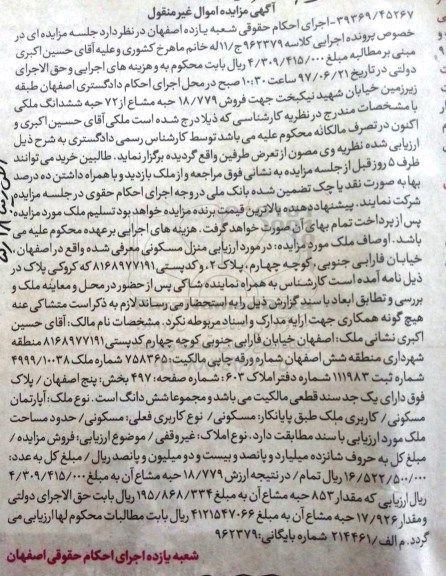 آگهی مزایده اموال غیرمنقول
۳۹۳۶۹/۴۵۲۶۷- اجرای احکام حقوقی شعبه یازده اصفهان در نظر دارد جلسه مزایده ای در
خصوص پرونده اجرایی کلاسه ۹۶۲۳۷۹ ج/۱۱ له خانم ماهرخ کشوری و علیه آقای حسین اکبری
مبنی بر مطالبه مبلغ ۴/۳۰۹/۴۱۵/۰۰۰ ریال بابت محکوم به و هزینه های اجرایی وحق الاجرای
دولتی در تاریخ ۹۷/۰۶/۲۱ ساعت ۱۰:۳۰ صبح در محل اجرای احکام دادگستری اصفهان طبقه
زیرزمین خیابان شهید نیکبخت جهت فروش ۱۸/۷۷۹ حبه مشاع از ۷۲ حبه ششدانگ ملکی
با مشخصات مندرج در نظریه کارشناسی که ذیلا درج شده است ملکی آقای حسین اکبری و
اکنون در تصرف مالکانه محکوم علیه می باشد توسط کارشناس رسمی دادگستری به شرح ذیل
ارزیابی شده نظریه وی مصون از تعرض طرفین واقع گردیده برگزار نماید. طالبین خرید می توانند
ظرف ۵ روز قبل از جلسه مزایده به نشانی فوق مراجعه و از ملک بازدید و با همراه داشتن ده درصد
بها به صورت نقد یا چک تضمین شده بانک ملی در وجه اجرای احکام حقوی در جلسه مزایده
شرکت نمایند. پیشنهاد دهنده بالاترین قیمت برنده مزایده خواهد بود تسلیم ملک مورد مزایده
پس از پرداخت تمام بهای آن صورت خواهد گرفت. هزینه های اجرایی بر عهده محکوم علیه می
باشد. اوصاف ملک مورد مزایده: در مورد ارزیابی منزل مسکونی معرفی شده واقع در اصفهان،
خیابان فارابی جنوبی، کوچه چهارم، پلاک ۲، و کدپستی ۸۱۶۸۹۷۷۱۹۱ که کروکی پلاک در
ذیل نامه آمده است کارشناس به همراه نماینده شاکی پس از حضور در محل و معاینه ملک و
بررسی و تطابق ابعاد با سند گزارش ذیل را به استحضار می رساند لازم به ذکر است متشاکی عنه
هیچ گونه همکاری جهت ارایه مدارک و اسناد مربوطه نکرد. مشخصات نام مالک: آقای حسین
اکبری نشانی ملک: اصفهان خیابان فارابی جنوبی کوچه چهارم کدپستی ۸۱۶۸۹۷۷۱۹۱ منطقه
شهرداری منطقه شش اصفهان شماره ورقه چاپی مالکیت: ۷۵۸۳۶۵ شماره ملک ۴۹۹۹/۱۰۰۳۸
شماره ثبت ۱۱۱۹۸۳ شماره دفتر املاک ۶۰۳: شماره صفحه: ۴۹۷ بخش: پنج اصفهان / پلاک
فوق دارای یک جد سند قطعی مالکیت می باشد و مجموعا شش دانگ است. نوع ملک: آپارتمان
مسکونی/ کاربری ملک طبق پایانکار: مسکونی/ نوع کاربری فعلی: مسکونی/ حدود مساحت
ملک مورد ارزیابی با سند مطابقت دارد. نوع املاک: غیروقفی/ موضوع ارزیابی: فروش مزایده/
مبلغ کل به حروف شانزده میلیارد و پانصد و بیست و دو میلیون و پانصد ریال/ مبلغ کل به عدد:
۱۶/۵۲۲/۵۰۰/۰۰۰ ریال تمام/ در نتیجه ارزش ۱۸/۷۷۹ حبه مشاع آن به مبلغ ۴/۳۰۹/۴۱۵/۰۰۰
ریال ارزیابی که مقدار ۸۵۳ حبه مشاع آن به مبلغ ۱۹۵/۸۶۸/۳۳۴ ریال بابت حق الاجرای دولتی
و مقدار ۱۷/۹۲۶ حبه مشاع آن به مبلغ ۴۱۲۱۵۴۷۰۶۶ ریال بابت مطالبات محکوم لها ارزیابی می
گردد. م الف/ ۲۱۴۴۶۱ شماره بایگانی: ۹۶۲۳۷۹
شعبه یازده اجرای احکام حقوقی اصفهان